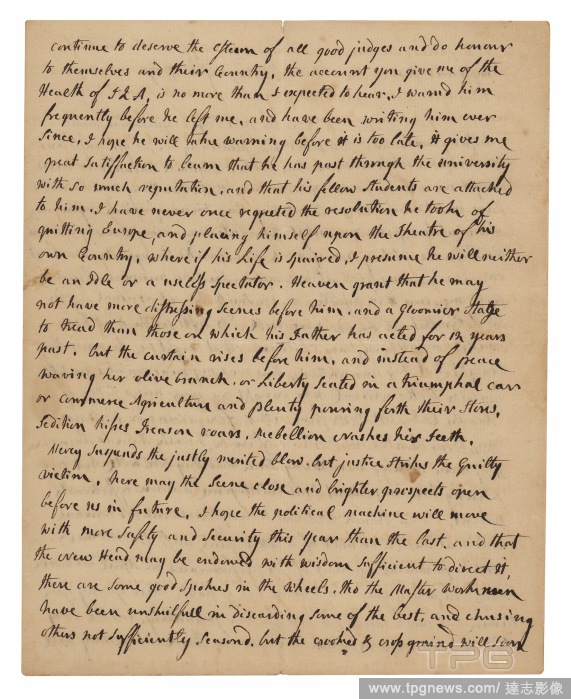 continue to deserve the Esteem of all good judges and do honour
to themselves and their Country. the account you give me of the
Health of J Q A, is no more than I expected to hear. I warnd him
frequently before he left me, and have been writing him ever
since, I hope he will take warning before it is too late. it gives me
great satisfaction to learn that he has past through the university
with so much reputation, and that his fellow Students are attached
to him. I have never once regreeted the resolution he took of
quitting Europe, and placing himself upon the Theatre of his
own Country, where if his Life is spaired, I presume he will neither
be an Idle or a useless Spectator. Heaven grant that he may
not have more distressing scenes before him, and a Gloomier Stage
to tread than those on which his Father has acted for 12 years
past. but the curtain rises before him, and instead of peace
waving her olive branch, or Liberty seated in a triumphal carr
or commerce Agriculture and plenty pouring forth their Stores,
Sedition hisses Treason roars, Rebellion Gnashes his Teeth.
Mercy Suspends the justly merited blow, but justice Strikes the Guilty
victim. here may the Scene close and brighter prospects open
before us in future. I hope the political machine will move
with more safety and security this year than the last, and that
the new Head may be endowed with wisdom sufficient to direct it,
there are some good Spokes in the wheels, tho the Master workmen
have been unskilfull in discarding some of the best, and chusing
others not sufficiently Seasond, but the crooked & cross graind will soon
TPG
www.tpgnews.com/ 達志影像